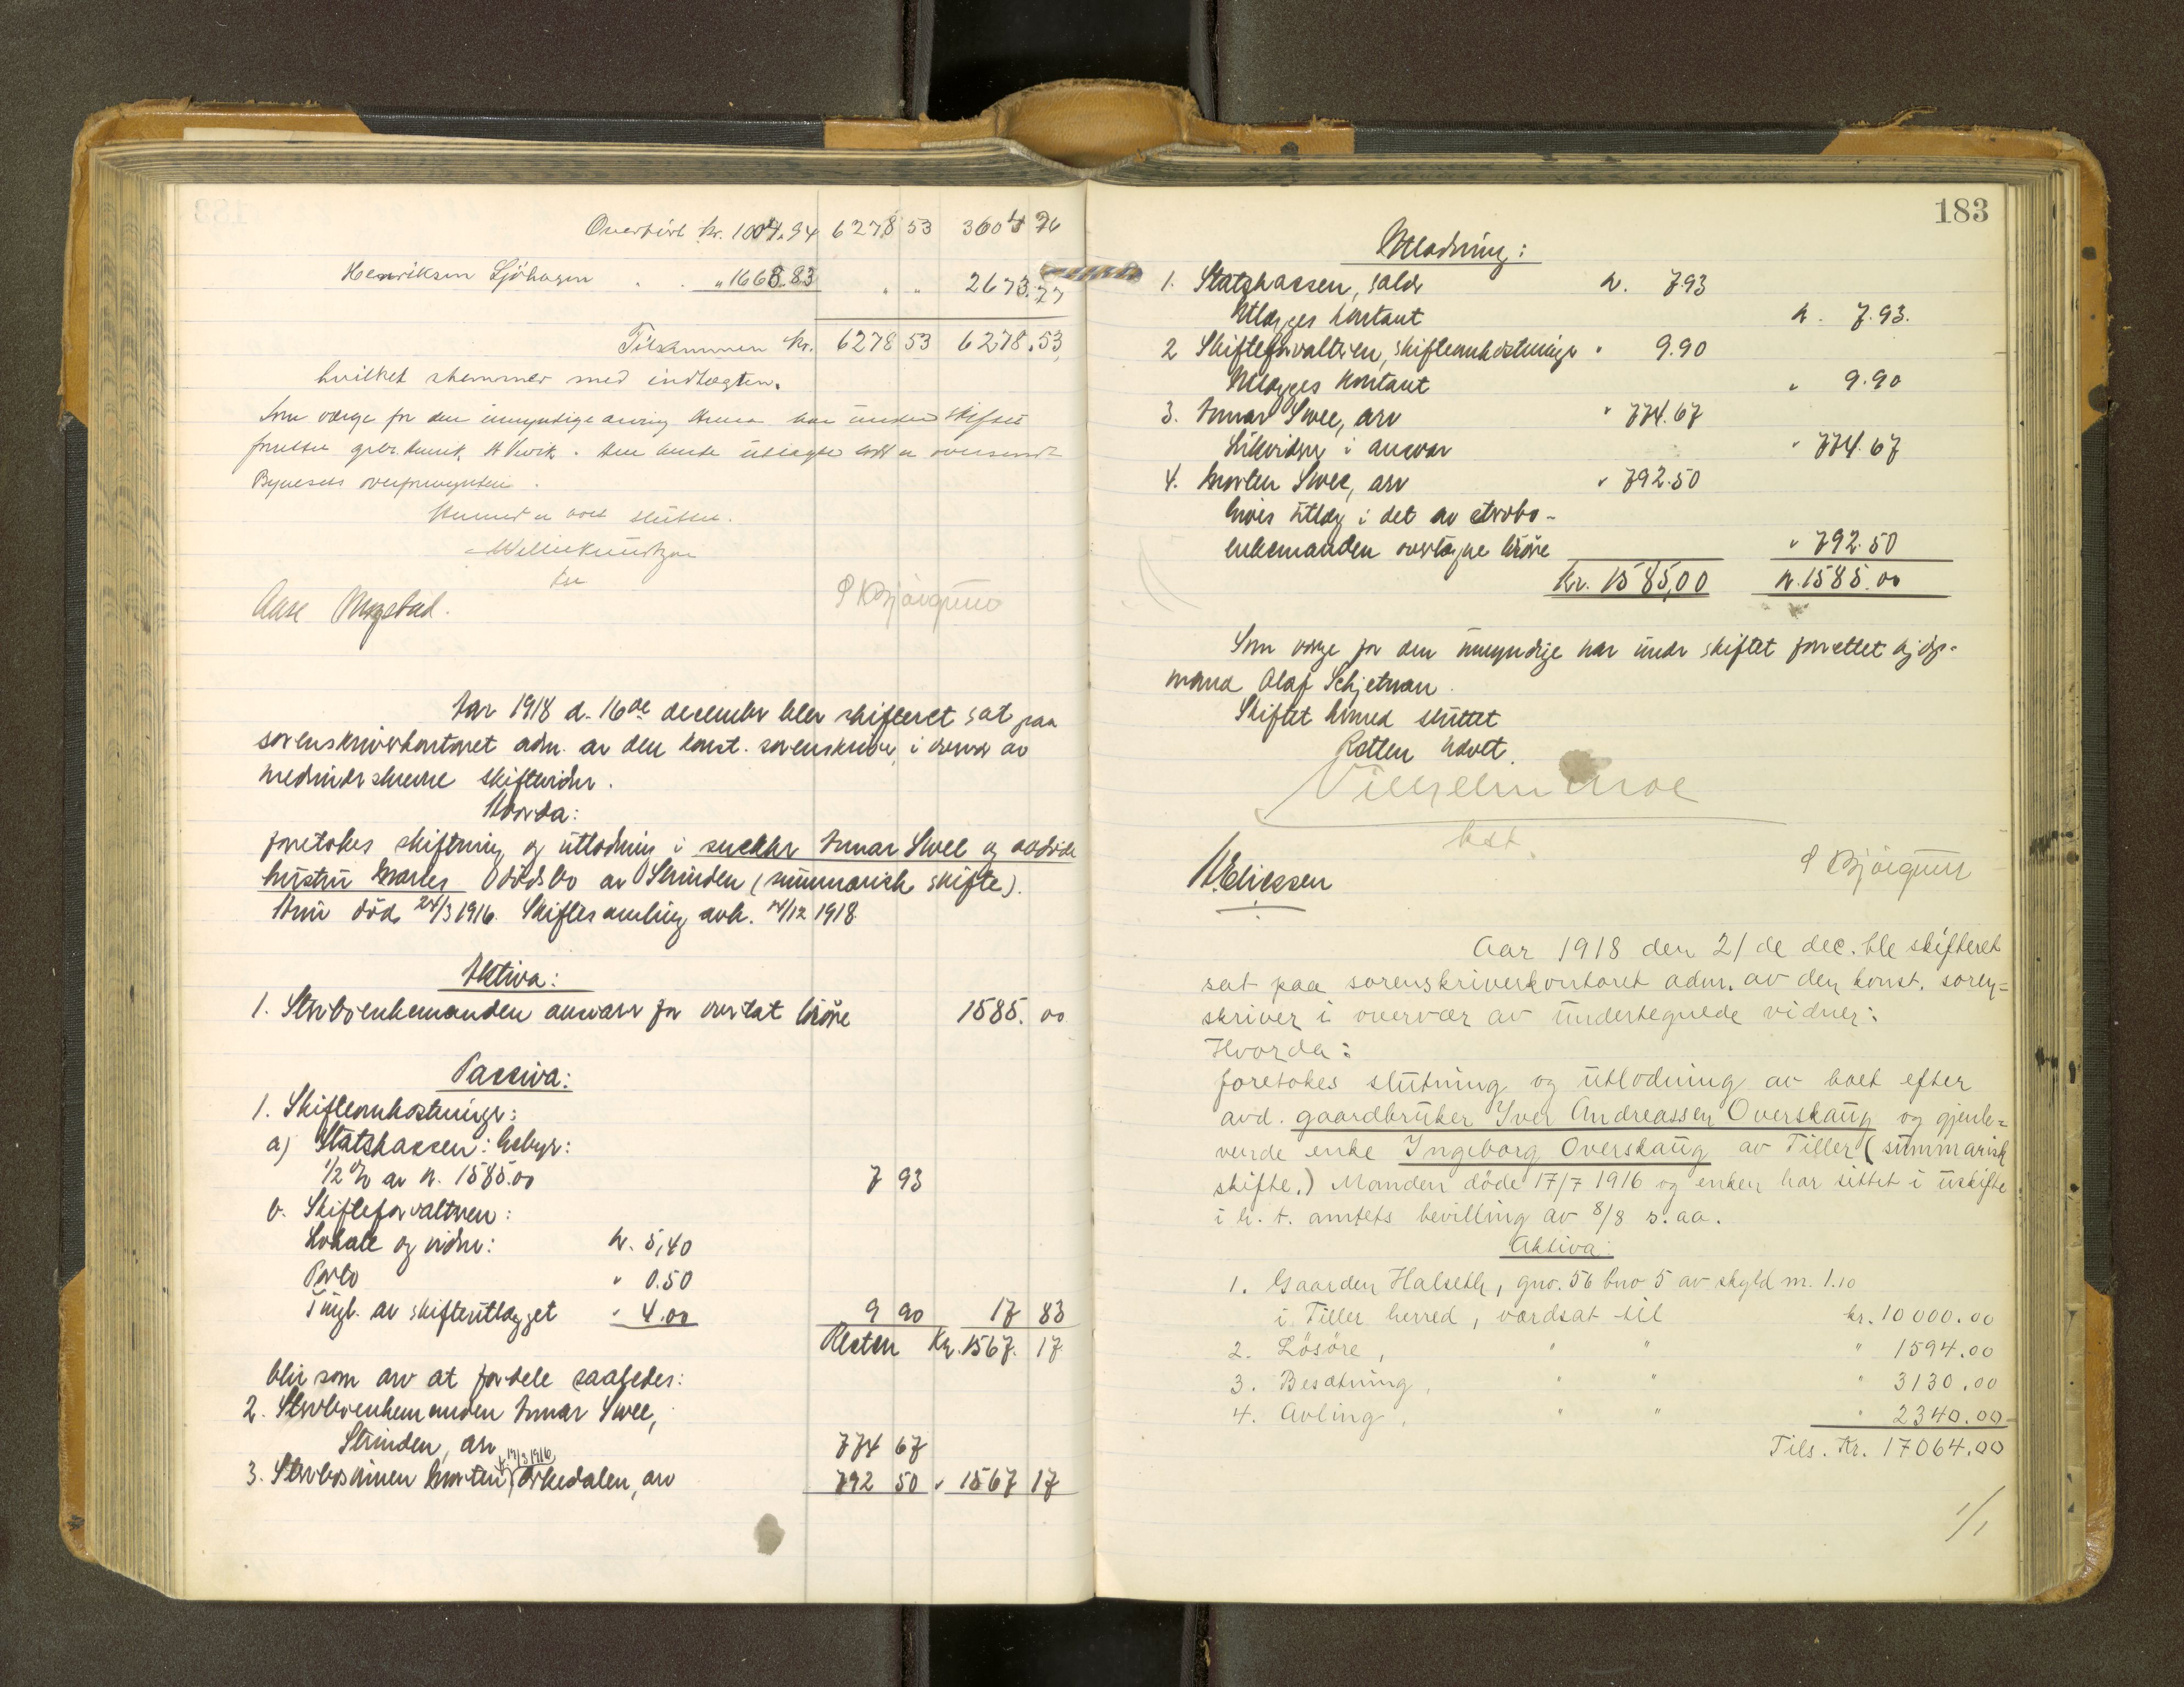 Overført kr. 1004.94 6278 53 3604 76
Henriksen Sjöhagen " 1668.83 " " 2673.77
Tilsammen kr. 6278 53 6278.53
hvilket stemmer med indtægten.
Som værge for den umyndige arving har under skiftet
Bynesets overformynderi.
sluttet.
kst
Aase
Aar 1918 d. 16de december blev skifteret sat paa
sorenskriverkontoret adm. av den konst. sorenskriver i overvær av
nedunderskrevne skiftevidner.
Hvorda:
foretokes skiftning og utlodning i snekker Gunnar Svee og avdöde
hustru Marles dödsbo av Strinden (summarisk skifte).
Hun död 24/3 1916. Skiftesamling avh. 14/12 1918
Aktiva:
1. Stervboenkemanden ansvarer for overtat lösöre 1585. 00
Passiva:
1. Skifteomkostninger:
a) Statskassen: Gebyr:
1/2 % av kr. 1585.00 7 93
b. Skifteforvalteren:
Lokale og vidner: kr. 5,40
Porto " 0.50
Tingl. av skifteutlægget " 4.00 9 90 17 83
Resten Kr. 1567. 17
blir som arv at fordele saaledes:
2. Stervboenkemanden Gunnar Svee,
Strinden, arv 774 67
3. Stervbosönnen Morten f. 17/3 1916 Orkedalen, arv 792 50 " 1567 17
183
Utlodning:
1. Statskassen, saldo kr. 7.93
Utlægges kontant kr. 7.93.
2 Skifteforvalteren, skifteomkostninger " 9.90
Utlægges kontant " 9.90
3. Gunnar Svee, arv " 774.67
Likvideres i ansvar " 774.67
4. Morten Svee, arv " 792.50
Gives utlæg i det av stervbo-
enkemanden overtagne lösöre " 792.50
Kr. 1585,00 kr. 1585.00
Som værge for den umyndige har under skiftet forrettet kjöp-
mand Olaf Schjetnan.
Skiftet hermed sluttet
Retten hævet.
Vilhelm Moe
kst.
Aar 1918 den 21de dec. ble skifteret
sat paa sorenskriverkontoret adm. av den konst. soren=
skriver i overvær av undertegnede vidner:
Hvorda:
foretokes slutning og utlodning av boet efter
avd. gaardbruker Iver Andreassen Overskaug og gjenle=
vende enke Ingeborg Overskaug av Tiller (summarisk
skifte.) Manden döde 17/7 1916 og enken har sittet i uskifte
i h. t. amtets bevilling av 8/8 s. aa.
Aktiva:
1. Gaarden Halseth, gno. 56 bno 5 av skyld m. 1.10
i Tiller herred, værdsat til kr. 10 000.00
2. Lösöre, " " " 1594.00
3. Besætning, " " " 3130.00
4. Avling, " " " 2340.00
Tils. Kr. 17064.00
1/1